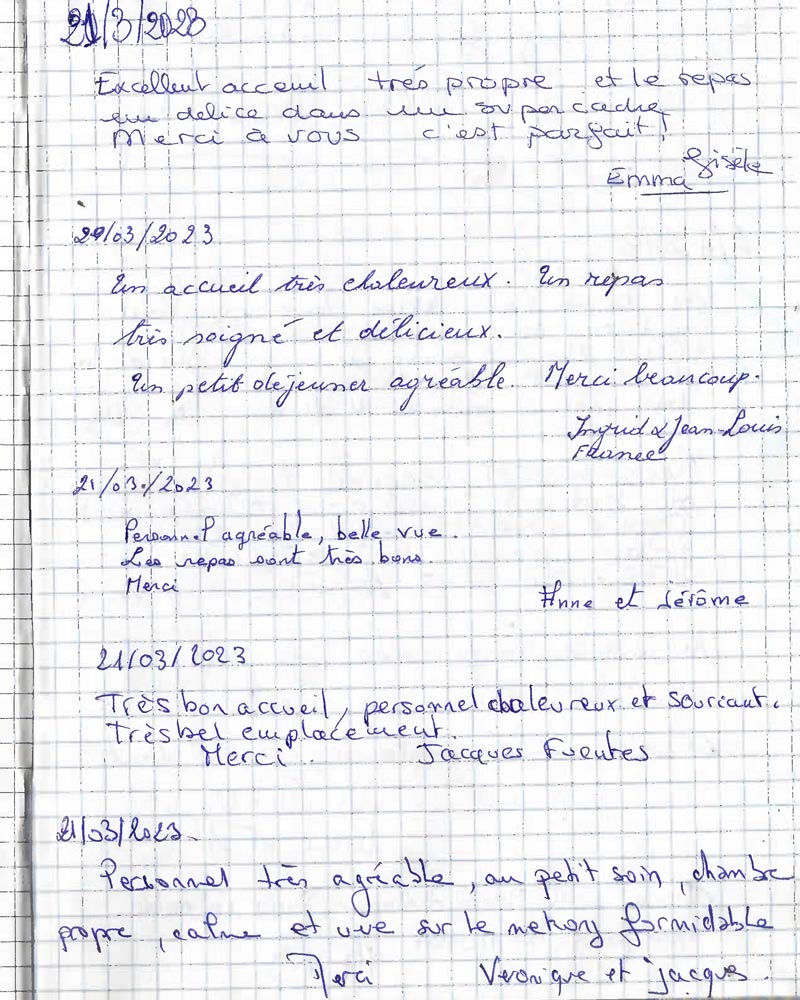 21/3/2023
Excellent acceuil très propre et le repas
un délice dans un super cadre
Merci à vous c'est parfait !
Gisèle
Emma
29/03/2023
Un accueil très chaleureux. Un repas
très soigné et délicieux.
Un petit déjeuner agréable. Merci beaucoup.
Ingrid & Jean-Louis
France
21/03/2023
Personnel agréable, belle vue.
Les repas sont très bons.
Merci
Anne et Jérôme
21/03/2023
Très bon accueil, personnel chaleureux et souriant.
Très bel emplacement.
Merci. Jacques Fuentes
21/03/2023.
Personnel très agréable, au petit soin, chambre
propre, calme et vue sur le mekong formidable
Merci Veronique et jacques.